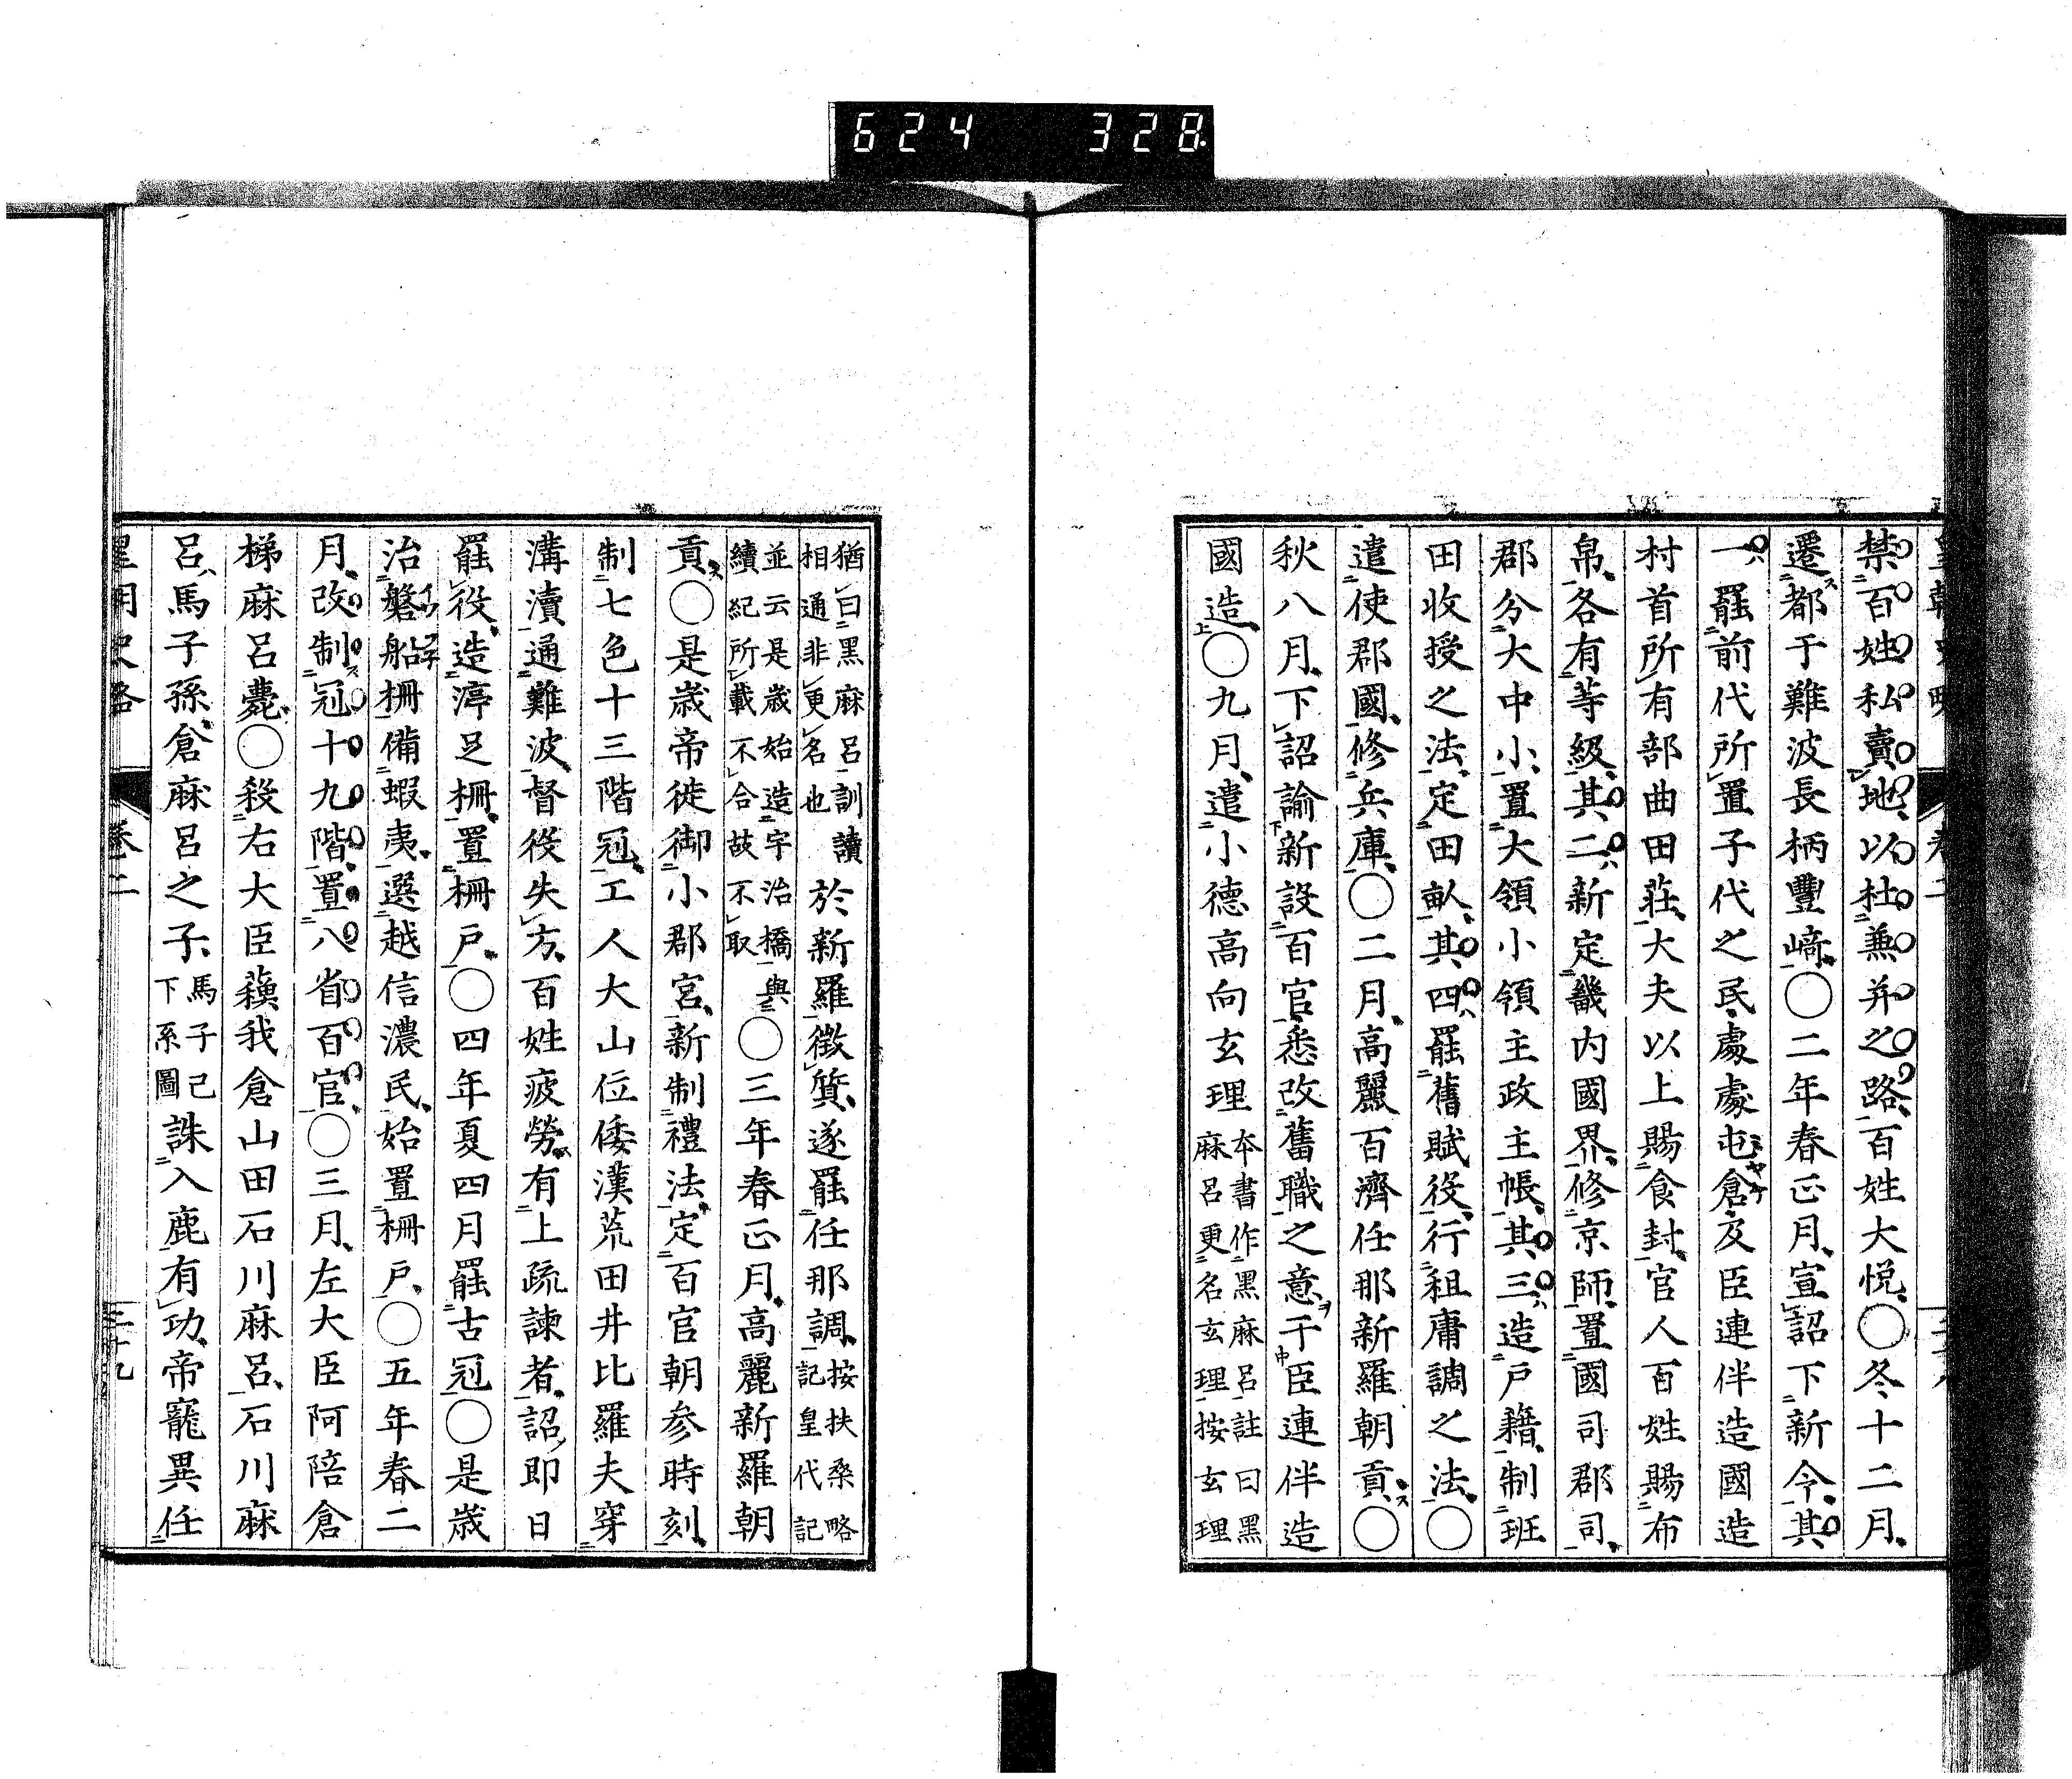 624 328
禁百姓私賣地以杜兼并之路百姓大悦〇冬十二月
遷都于難波長柄豐﨑〇二年春正月宣詔下新令其
一罷前代所置子代之民處處屯倉及臣連伴造國造
村首所有部曲田莊大夫以上賜食封官人百姓賜布
帛各有等級其二新定畿内國界修京師置國司郡司
郡分大中小置大領小領主政主帳其三造戸籍制班
田收授之法定田畝其四罷舊賦役行租庸調之法〇
遣使郡國修兵庫〇二月高麗百濟任那新羅朝貢〇
秋八月下詔諭新設百官悉改舊職之意于臣連伴造
國造〇九月遣小德高向玄理本書作黑麻呂註曰黑麻呂更名玄理按玄理
猶曰黑麻呂訓讀相通非更名也於新羅徵質遂罷任那調按扶桑略記皇代記
並云是歳始造宇治橋與續紀所載不合故不取〇三年春正月高麗新羅朝
貢〇是歳帝徙御小郡宮新制禮法定百官朝参時刻
制七色十三階冠工人大山位倭漢荒田井比羅夫穿
溝瀆通難波督役失方百姓疲勞有上疏諫者詔即日
罷役造渟足柵置柵戸〇四年夏四月罷古冠〇是歳
治磐船柵備蝦夷選越信濃民始置柵戸〇五年春二
月改制冠十九階置八省百官〇三月左大臣阿陪倉
梯麻呂薨〇殺右大臣蘓我倉山田石川麻呂石川麻
呂馬子孫倉麻呂之子馬子已下系圖誅入鹿有功帝寵異任
皇朝史略 卷二 二十九